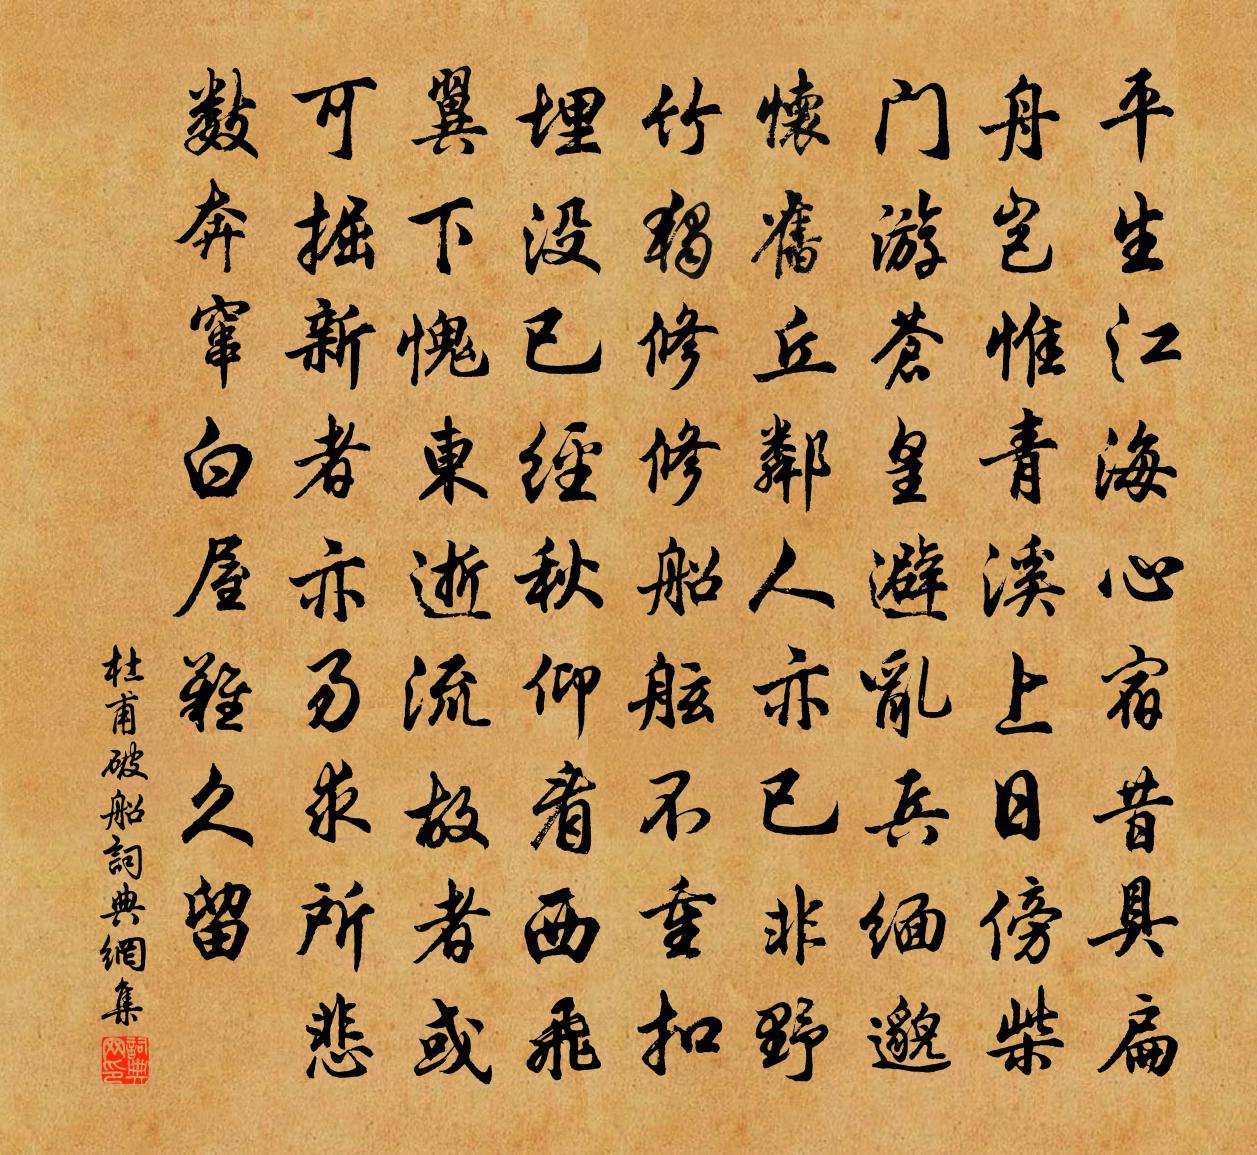 平生江海心宿昔具扁
舟岂惟青溪上日傍柴
门游蒼皇避亂兵缅邈
懷舊丘鄰人亦已非野
竹獨修修船舷不重扣
埋没已經秋仰看西飛
翼下愧東逝流故者或
可掘新者亦易求所悲
数奔窜白屋難久留
杜甫破船詞典網集
詞典网印